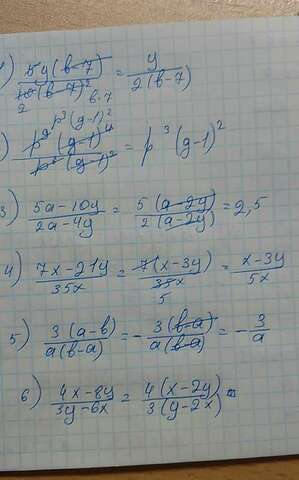 1) 5y(b-7) / 10(b-7)² = y / 2(b-7)
2 b-7
p³(g-1)²
) p⁹(g-1)⁴ / p⁶(g-1)² = p³(g-1)²
3) 5a-10y / 2a-4y = 5(a-2y) / 2(a-2y) = 2,5
4) 7x-21y / 35x = 7(x-3y) / 35x = x-3y / 5x
5
5) 3(a-b) / a(b-a) = - 3(b-a) / a(b-a) = - 3 / a
6) 4x-8y / 3y-6x = 4(x-2y) / 3(y-2x) =